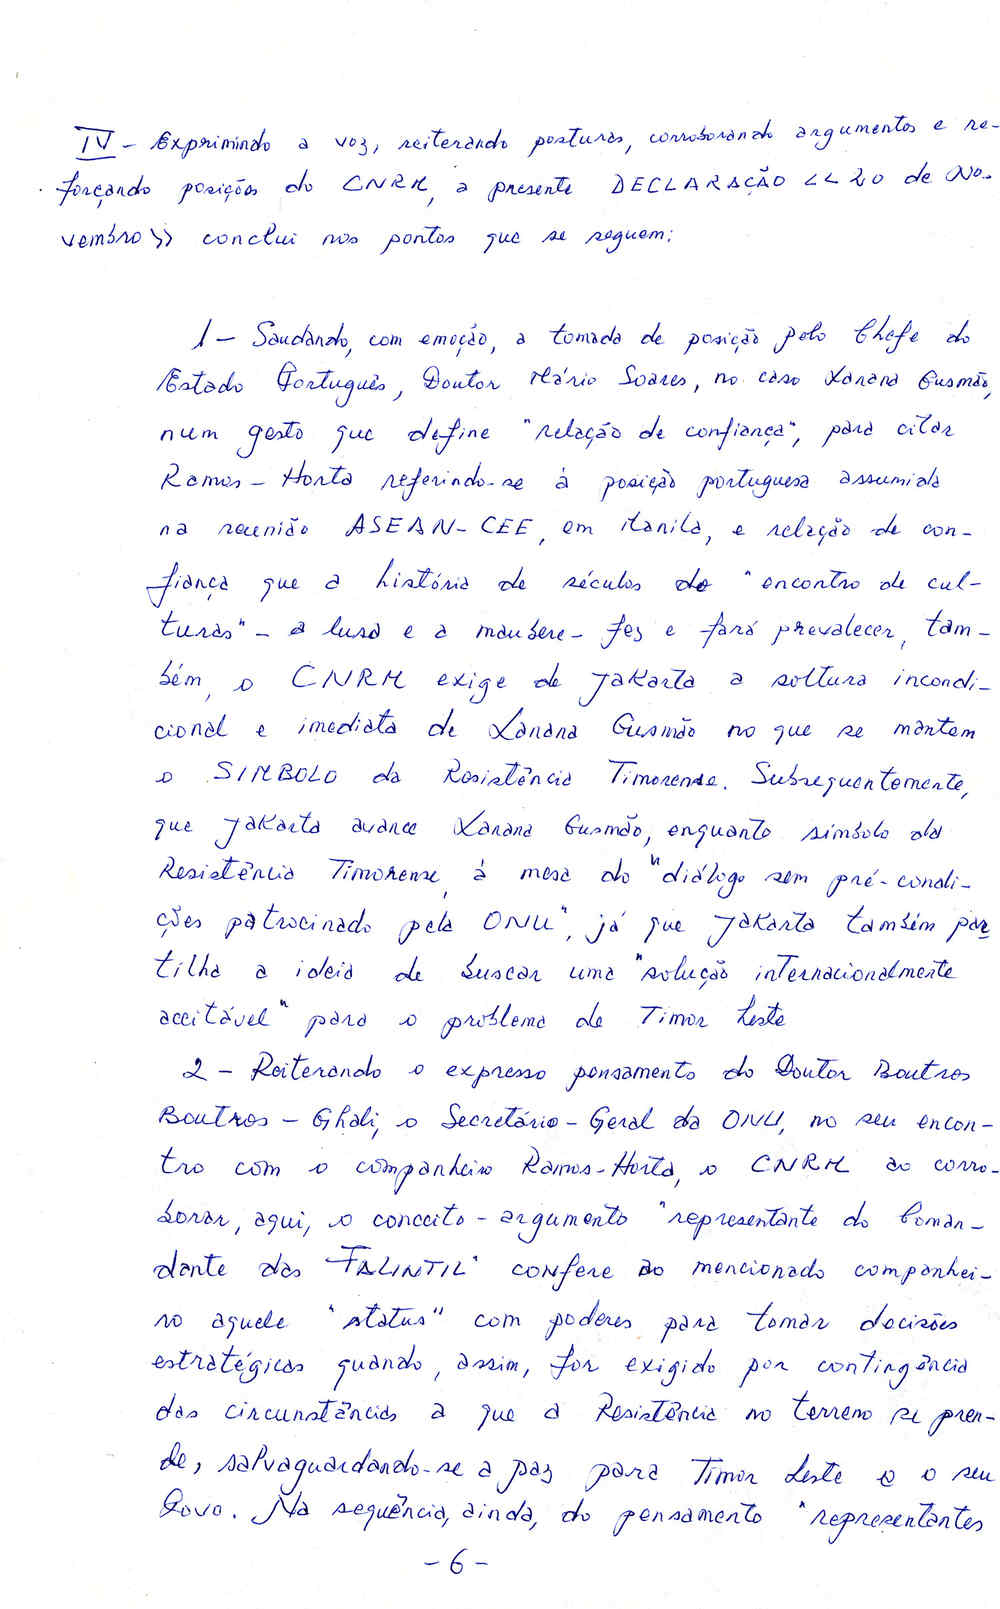 IV - Exprimindo a voz, reiterando posturas, corroborando argumentos e re-
forçando posições do CNRM, a presente DECLARAÇÃO << 20 de No-
vembro >> conclui nos pontos que se seguem:
1 - Saudando, com emoção, a tomada de posição pelo Chefe do
Estado Português, Doutor Mário Soares, no caso Xanana Gusmão,
num gesto que define "relação de confiança", para citar
Ramos-Horta referindo-se à posição portuguesa assumida
na reunião ASEAN-CEE, em Manila, e relação de con-
fiança que a história de séculos do "encontro de cul-
turas" - a lusa e a maubere - fez e fará prevalecer, tam-
bém, o CNRM exige de Jakarta a soltura incondi-
cional e imediata de Xanana Gusmão no que se mantem
o SIMBOLO da Resistência Timorense. Subsequentemente,
que Jakarta avance Xanana Gusmão, enquanto símbolo da
Resistência Timorense, à mesa do "diálogo sem pré-condi-
ções patrocinado pela ONU", já que Jakarta também par
tilha a ideia de buscar uma "solução internacionalmente
aceitável" para o problema de Timor Leste
2 - Reiterando o expresso pensamento do Doutor Boutros
Boutros-Ghali, o Secretário-Geral da ONU, no seu encon-
tro com o companheiro Ramos-Horta, o CNRM ao corro-
borar, aqui, o conceito-argumento "representante do Coman-
dante das FALINTIL" confere ao mencionado companhei-
ro aquele "status" com poderes para tomar decisões
estratégicas quando, assim, for exigido por contingência
das circunstâncias a que a Resistência no terreno se pren-
de, salvaguardando-se a paz para Timor Leste e o seu
Povo. Na sequência, ainda, do pensamento "representantes
- 6 -